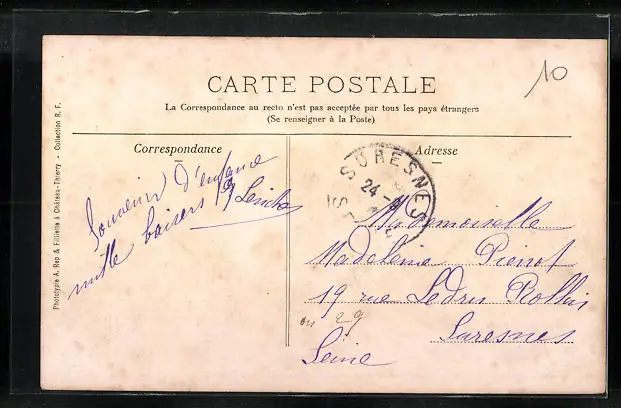 10
CARTE POSTALE
La Correspondance au recto n'est pas acceptée par tous les pays étrangers
(Se renseigner à la Poste)
Correspondance
Adresse
Phototypie A. Rep & Filliette à Château-Thierry - Collection R. F.
Souvenir d'enfance
mille baisers
SURESNES
24
Mademoiselle
Madeleine Pierrot
19 rue Ledru Rollin
ou 29
Suresnes
Seine